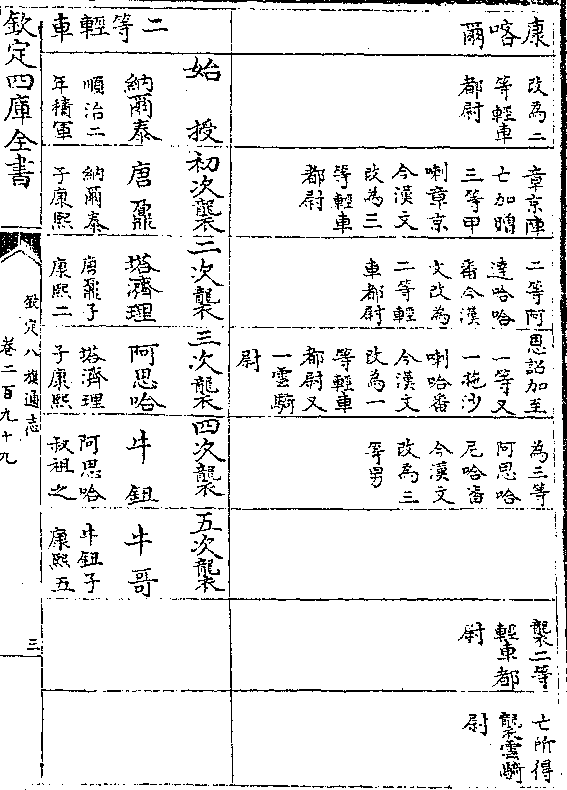 康喀爾
改為二
等輕車
都尉
章京陣
亡加贈
三等甲
喇章京
今漢文
改為三
等輕車
都尉
二等阿
達哈哈
番今漢
文改為
二等輕
車都尉
恩詔加至
一等又
一拖沙
喇哈番
今漢文
改為一
等輕車
都尉又
一雲騎
尉
為三等
阿思哈
尼哈番
今漢文
改為三
等男
襲二等
輕車都
尉
亡所得
襲雲騎
尉
二等輕車
始授
納爾泰
順治二
年積軍
初次襲
唐鼐
納爾泰
子康熙
二次襲
塔濟理
唐鼐子
康熙二
三次襲
阿思哈
塔濟理
子康熙
四次襲
牛鈕
阿思哈
叔祖之
五次襲
牛哥
牛鈕子
康熙五
欽定四庫全書
欽定八旗通志
卷二百九十九
三